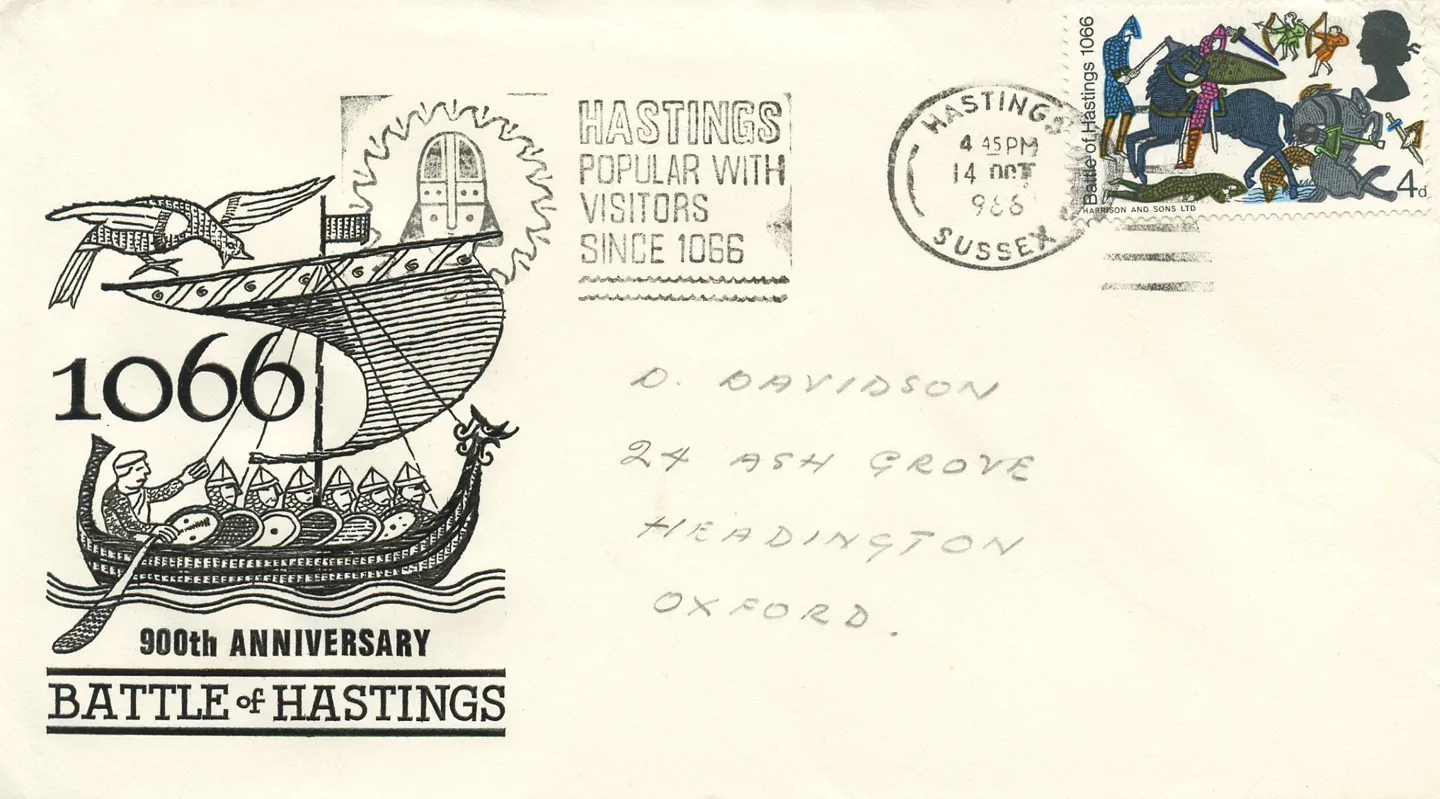 Battle of Hastings 1066
HARRISON AND SONS LTD
4d
HASTINGS
4 45 PM
14 OCT
966
SUSSEX
HASTINGS
POPULAR WITH
VISITORS
SINCE 1066
1066
900th ANNIVERSARY
BATTLE of HASTINGS
D. DAVIDSON
24 ASH GROVE
HEADINGTON
OXFORD.